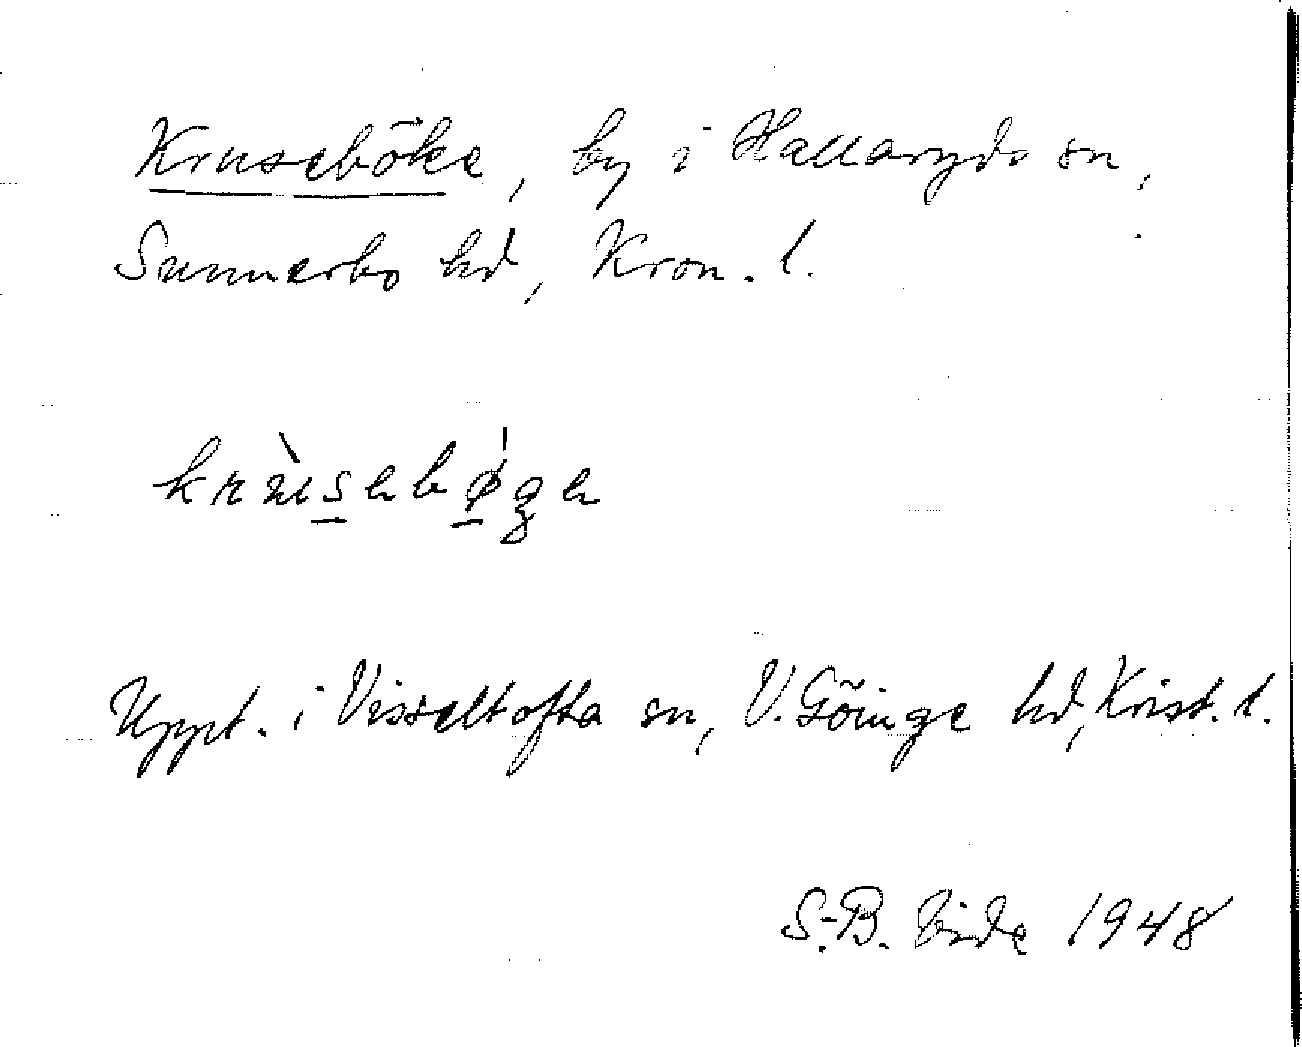 Kruseböke, by i Hallaryds sn,
Sunnerbo hd, Kron. l.
krùsebǿge
Uppt. i Visseltofta sn, V. Göinge hd, Krist. l.
S.-B. Vide 1948